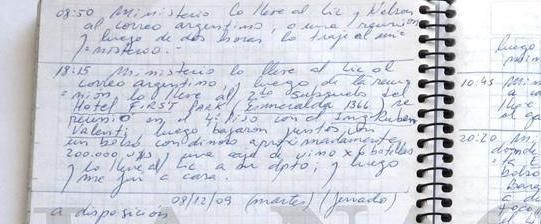 08:50 Ministerio lo lleve al Lic y Nelson
al correo argentino, a una reunión
y luego de dos horas lo traje al mi-
nisterio.-
18:15 Ministerio lo lleve al Lic al
correo argentino, y luego de la reu-
nión lo lleve al 2do subsuelo del
Hotel FIRST park (Esmeralda 1366) se
reunió en el 4º piso con el Ing Ruben
Valenti, luego bajaron juntos con
un bolso conteniendo aproximadamente
200.000 u$s y una caja de vino x 6 botellas
y lo lleve al Lic a su dpto; y luego
me fui a casa.
08/12/09 (martes) (feriado)
a disposición
luego
10:45
20:20
donde
bolso